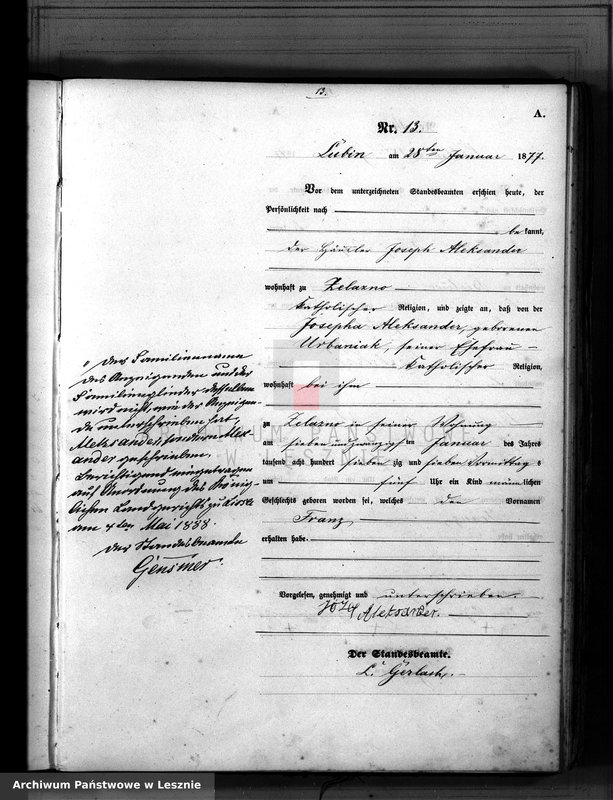 13.
A.
Nr. 13.
Lubin am 28ten Januar 1877.
Vor dem unterzeichneten Standesbeamten erschien heute, der
Persönlichkeit nach
bekannt,
der Häusler Joseph Aleksander
wohnhaft zu Zelazno
katholischer Religion, und zeigte an, daß von der
Josepha Aleksander, geborenen
Urbaniak, seiner Ehefrau
katholischer Religion,
wohnhaft bei ihm
zu Zelazno in seiner Wohnung
am sieben und zwanzigsten Januar des Jahres
tausend acht hundert siebenzig und sieben Vormittags
um fünf Uhr ein Kind männlichen
Geschlechts geboren worden sei, welches den Vornamen
Franz
erhalten habe.
Vorgelesen, genehmigt und unterschrieben.
Józef Aleksander.
Der Standesbeamte.
L. Gerlach.
Der Familienname
des Anzeigenden und der
Familienglieder desselben
wird nicht, wie der Anzeigen-
de unterschrieben hat,
Aleksander, sondern Alex-
ander geschrieben.
Berichtigend eingetragen
auf Anordnung des König-
lichen Landgerichts zu Lissa
am 4ten Mai 1888.
Der Standesbeamte
Gensmer.
ARCHIWUM PAŃSTWOWE
W LESZNIE
Archiwum Państwowe w Lesznie